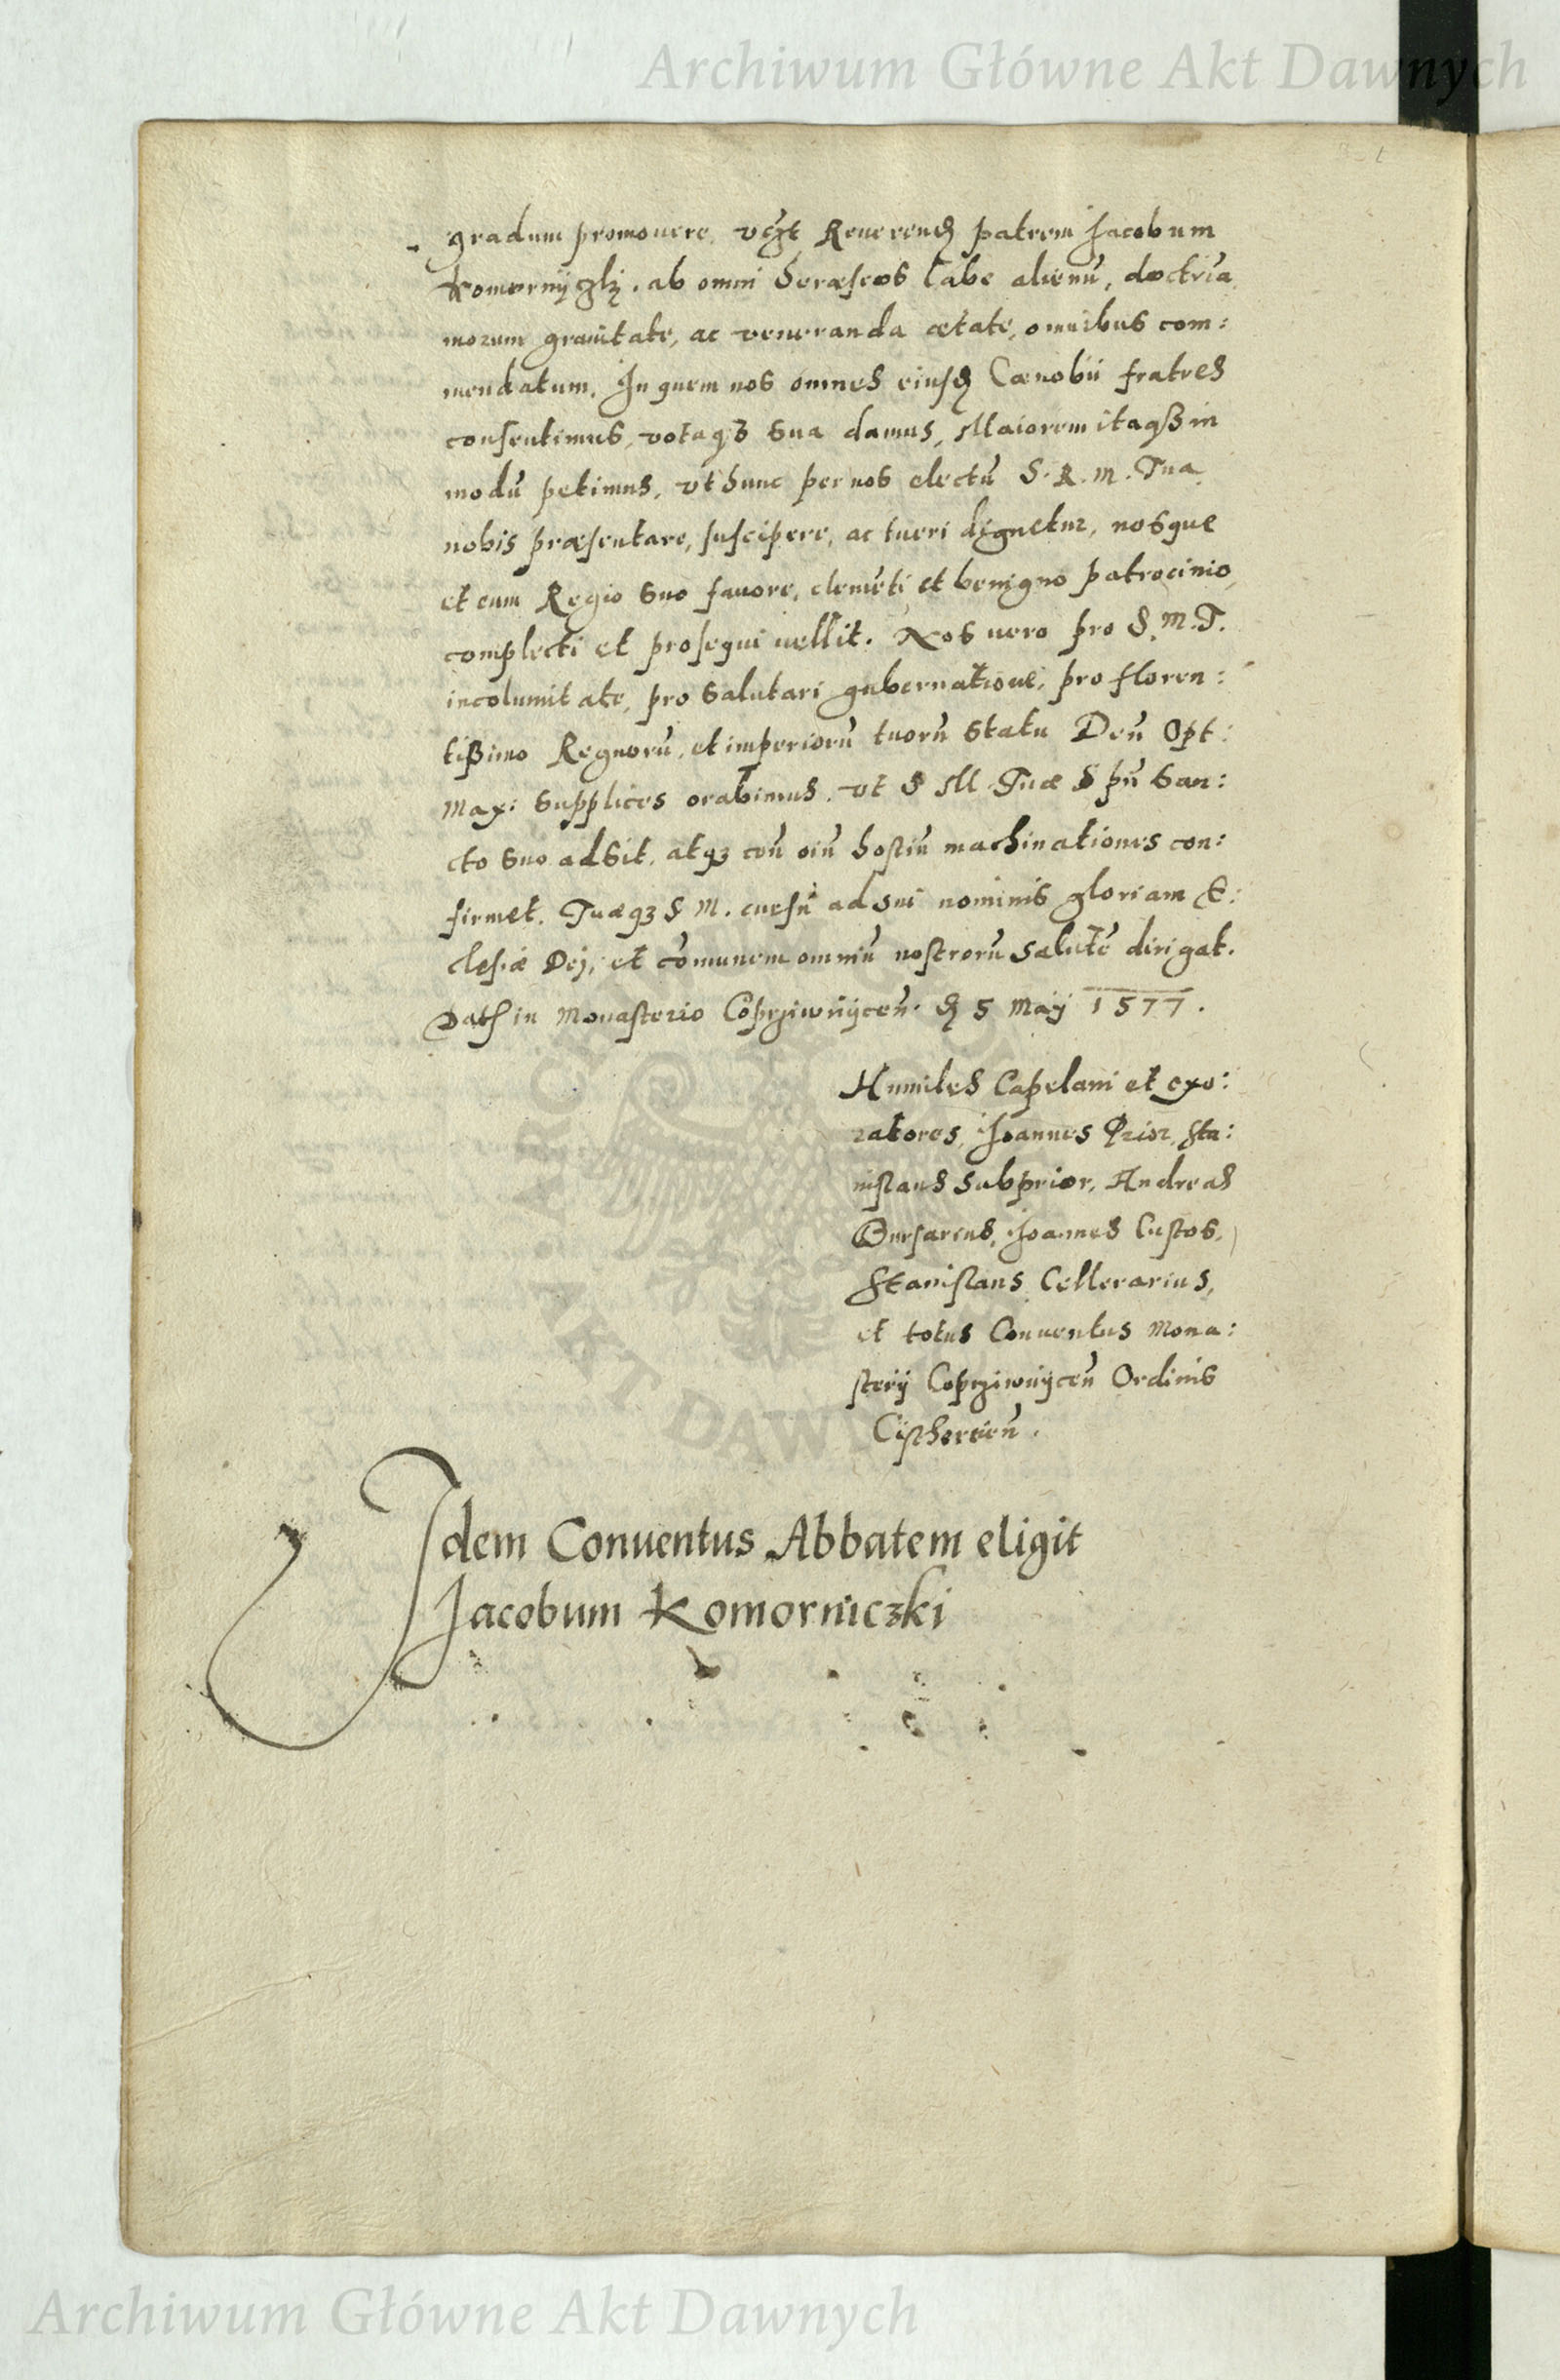 Archiwum Główne Akt Dawnych
gradum promouere, Reuerend patrem Jacobum
Komornyczkj, ab omni heræseos labe alienū, doctrīa
morum grauitate, ac veneranda ætate, omnibus com:
mendatum. In quem nos omnes eiusd Cænobii fratres
consentimus, votaq3 sua damus, Maiorem itaq3 in
modū petimus, vt hunc per nos electū S. R. M. Tua
nobis præsentare, suscipere, ac tueri dignetur, nosque
et eum Regio suo fauore, clemēti et benigno patrocinio,
complecti et prosequi vellit. Nos uero pro S. M. T.
incolumitate, pro salutari gubernatione, pro floren:
tißimo Regnorū, et imperiorū tuorū statu Deū Opt:
Max: supplices orabimus, vt S M Tuæ Spū San:
cto suo adsit, atq3 oīū hostiū machinationes con:
firmet. Tuæq3 S M. cursū ad sui nominis gloriam Ec:
clesiæ Dej, et cōmunem omniū nostrorū salutē dirigat.
Dat in Monasterio Coprziwnÿceñ. d 5 Maÿ 1577.
Humiles Capelani et exo:
ratores, Joannes Prior, Sta:
nislaus Subprior, Andreas
Bursarius, Joannes Custos,
Stanislaus Cellerarius,
et totus Conuentus Mona:
sterÿ Coprziwnÿceñ Ordinis
Cistercieñ.
Idem Conuentus Abbatem eligit
Jacobum Komorniczki
ARCHIWUM
AKT DAWNYCH
Archiwum Główne Akt Dawnych